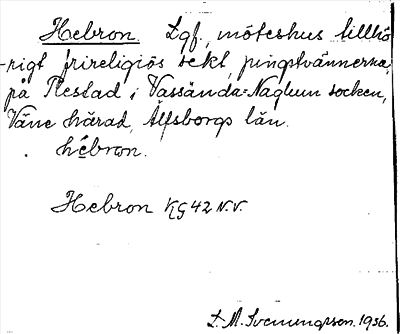 Hebron. Lgf., möteshus tillhö-
rigt frireligiös sekt, pingstvännerna,
på Plestad i Vassända-Naglum socken,
Väne härad, Älfsborgs län.
hébron.
Hebron KG 42 N.V.
L. M. Svenungsson. 1936.